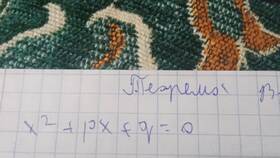 Теорема В
x² + px + q = 0